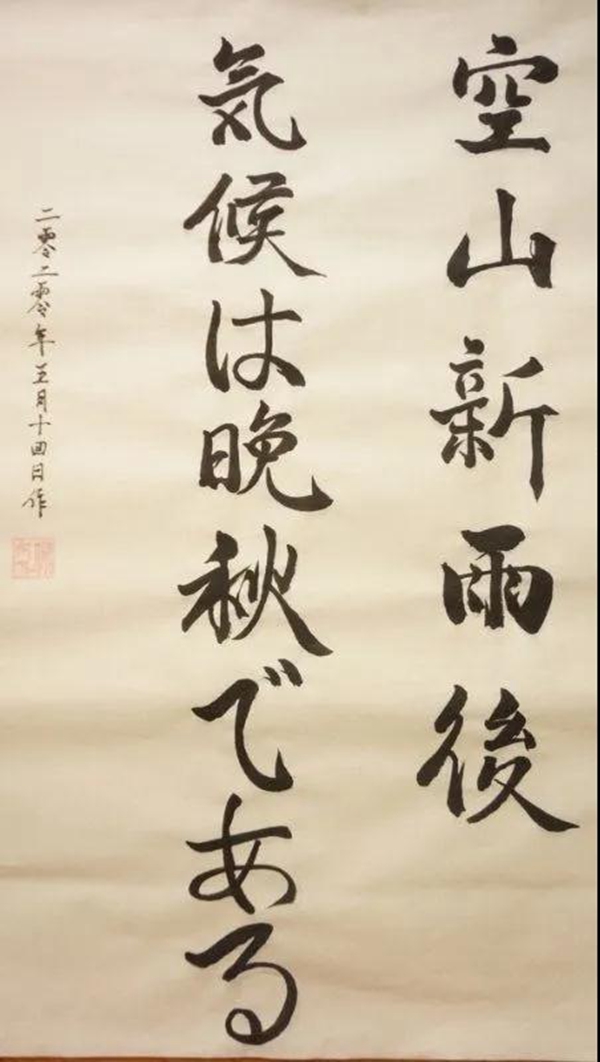 空山新雨後
気候は晩秋である
二零二零年五月十四日作